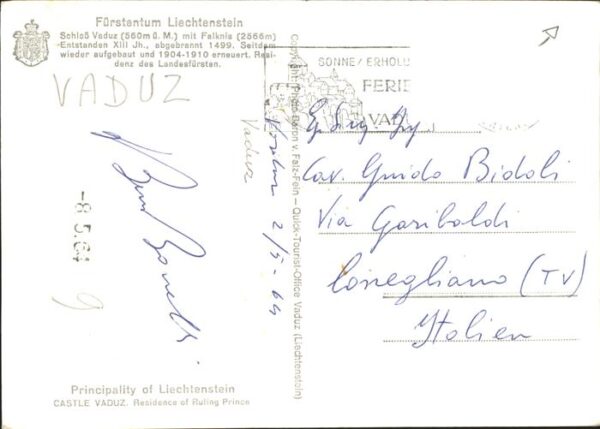 Fürstentum Liechtenstein
Schloß Vaduz (560m ü. M.) mit Falknis (2566m)
Entstanden XIII Jh., abgebrannt 1499. Seitdem
wieder aufgebaut und 1904-1910 erneuert. Resi-
denz des Landesfürsten.
VADUZ
2/5-64
Vaduz
-8.5.64
9
Principality of Liechtenstein
CASTLE VADUZ. Residence of Ruling Prince
Copyright Photo Baron v. Falz-Fein – Quick-Tourist-Office Vaduz (Liechtenstein)
SONNE/ERHOLU
FERIE
VADU
Cav. Guido Bidoli
Via Garibaldi
Conegliano (TV)
Italien